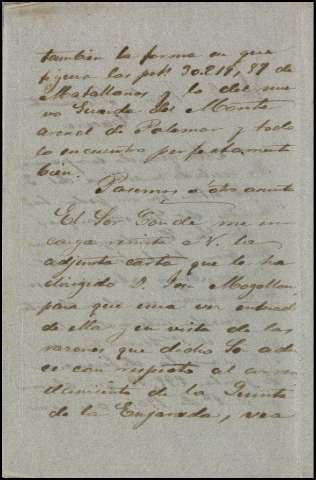 tambien la forma en que
figura las pts 30.219,87 de
Matallana y lo del nue
vo Guarda del Monte
arenal de Palomar y todo
lo encuentro perfectamente
bien.
Pasemos a otro asunto
El Sor Conde me en
carga remita a V. la
adjunta carta que le ha
dirigido D. Jose Mogollon
para que una vez enterad
de ella y en vista de las
razones que dicho Sr adu
ce con respecto al arren
damiento de la Quinta
de la Enjarada, vea